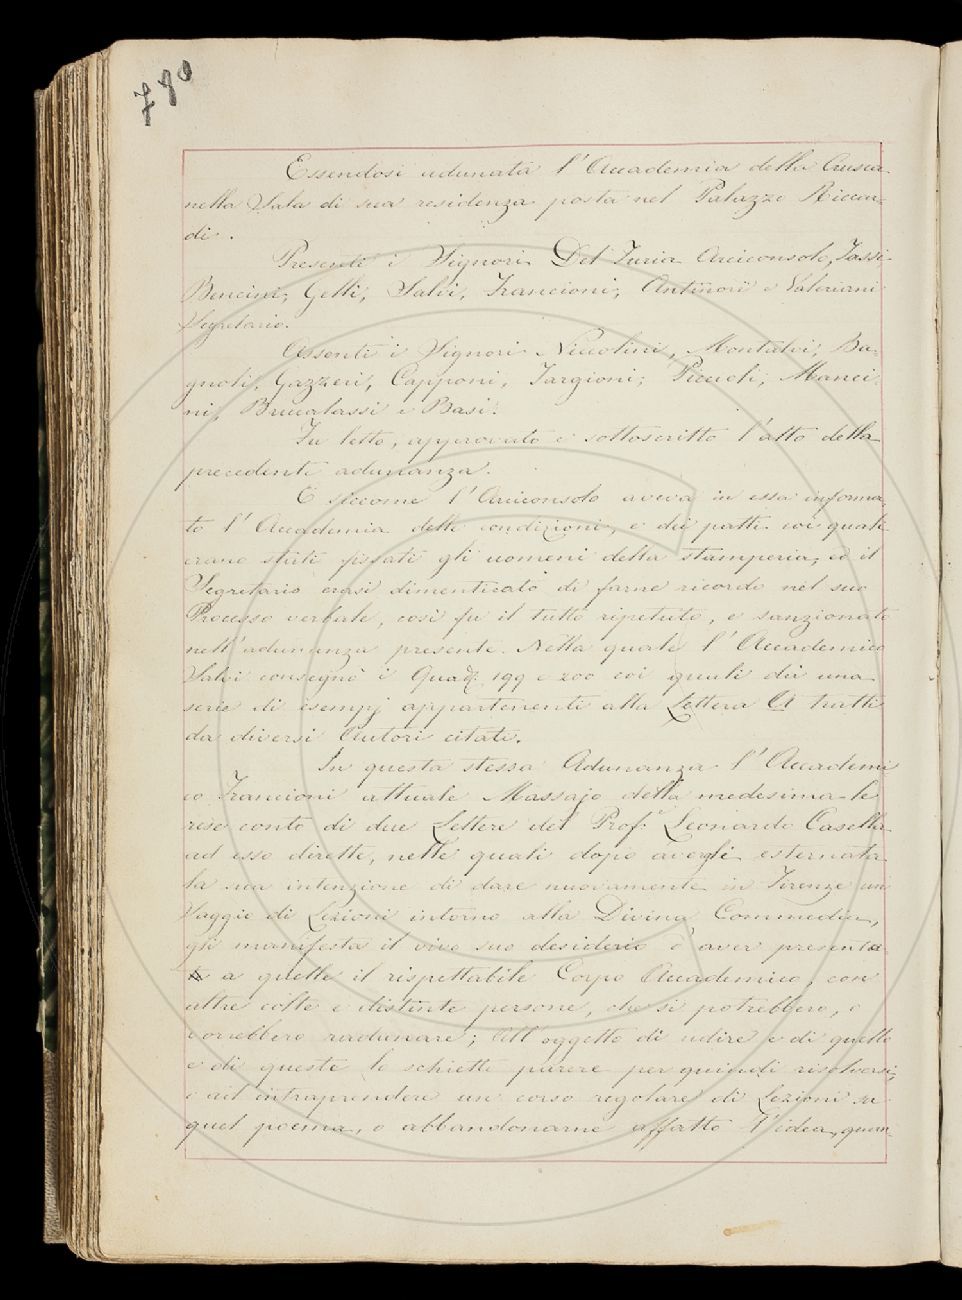 780
Essendosi adunata l'Accademia della Crusca
nella Sala di sua residenza posta nel Palazzo Riccar-
di.
Presenti i Signori Del Furia Arciconsolo, Tassi
Bencini, Gelli, Salvi, Francioni, Antinori e Valeriani
Segretario.
Assenti i Signori Niccolini, Montalvi, Ba-
gnoli, Gazzeri, Capponi, Targioni, Piccioli, Manci-
ni, Brucalassi e Basi.
Fu letto, approvato e sottoscritto l'atto della
precedente adunanza.
E siccome l'Arciconsolo aveva in essa informa-
to l'Accademia delle condizioni, e dei patti coi quali
erano stati fissati gli uomeni della stamperia, ed il
Segretario erasi dimenticato di farne ricordo nel suo
Processo verbale, così fu il tutto ripetuto, e sanzionato
nell'adunanza presente. Nella quale l'Accademico
Salvi consegnò i Quad. 199 e 200 coi quali dà una
serie di esempj appartenenti alla Lettera A tratti
da diversi Autori citati.
In questa stessa Adunanza l'Accademi
co Francioni attuale Massajo della medesima le
rese conto di due Lettere del Prof. Leonardo Casella
ad esso dirette, nelle quali dopo avergli esternata
la sua intenzione di dare nuovamente in Firenze un
Saggio di Lezioni intorno alla Divina Commedia,
gli manifesta il vivo suo desiderio d'aver presente
a quelle il rispettabile Corpo Accademico, con
altre colte e distinte persone, che si potrebbero, o
vorrebbero radunare; All'oggetto di udire e di quello
e di queste lo schietto parere per quindi risolversi,
o ad intraprendere un corso regolare di Lezioni su
quel poema, o abbandonarne affatto l'idea, quan-